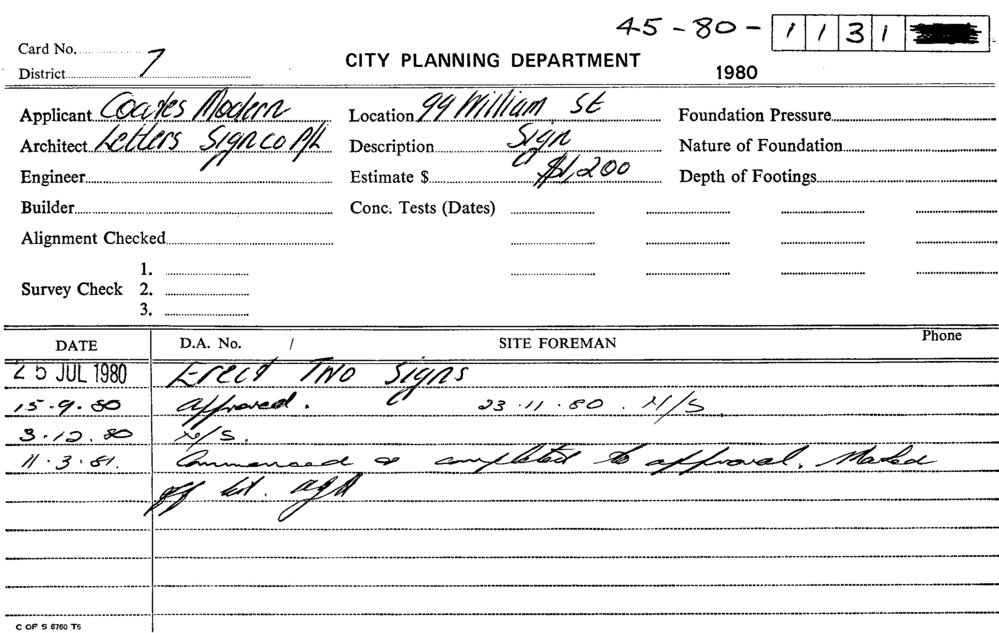 45-80- 1 1 3 1
Card No.
District 7
CITY PLANNING DEPARTMENT
1980
Applicant Coates Modern
Location 99 William St
Foundation Pressure
Architect Letters Sign co P/L
Description Sign
Nature of Foundation
Engineer
Estimate $ $1,200
Depth of Footings
Builder
Conc. Tests (Dates)
Alignment Checked
Survey Check 1.
2.
3.
DATE D.A. No. / SITE FOREMAN Phone
25 JUL 1980 Erect Two Signs
15.9.80 Approved. 23.11.80. N/S
3.12.80 N/S.
11.3.81. Commenced & completed to approval. Marked
off list.
C OF S 6760 T6